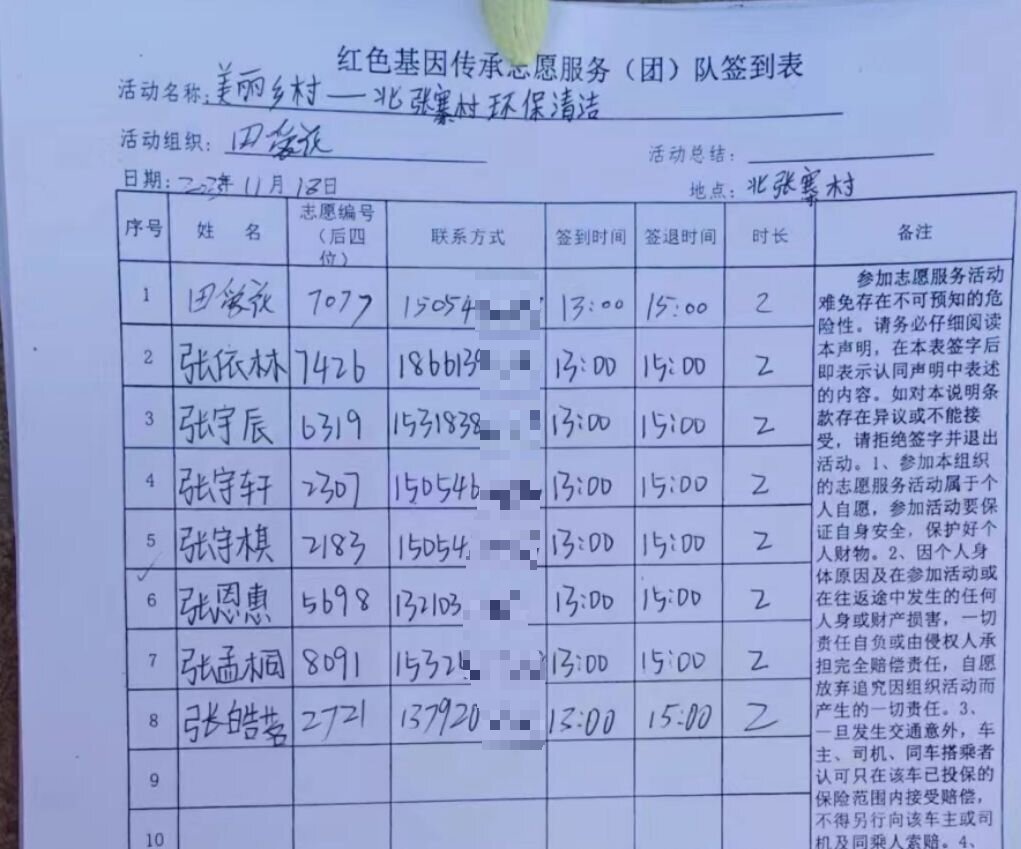 红色基因传承志愿服务（团）队签到表
活动名称：美丽乡村——北张寨村环保清洁
活动组织：田爱花
活动总结：
日期：2023年11月18日
地点：北张寨村
序号 姓 名 志愿编号（后四位） 联系方式 签到时间 签退时间 时长 备注
1 田爱花 7077 15054 13:00 15:00 2
2 张依林 7426 186613 13:00 15:00 2
3 张宇辰 6319 1531838 13:00 15:00 2
4 张宇轩 2307 150546 13:00 15:00 2
5 张宇棋 2183 15054 13:00 15:00 2
6 张恩惠 5698 132103 13:00 15:00 2
7 张孟桐 8091 1532 13:00 15:00 2
8 张皓 2721 137920 13:00 15:00 2
9
10
参加志愿服务活动
难免存在不可预知的危
险性。请务必仔细阅读
本声明，在本表签字后
即表示认同声明中表述
的内容。如对本说明条
款存在异议或不能接
受，请拒绝签字并退出
活动。1、参加本组织
的志愿服务活动属于个
人自愿，参加活动要保
证自身安全，保护好个
人财物。2、因个人身
体原因及在参加活动或
在往返途中发生的任何
人身或财产损害，一切
责任自负或由侵权人承
担完全赔偿责任，自愿
放弃追究因组织活动而
产生的一切责任。3、
一旦发生交通意外，车
主、司机、同车搭乘者
认可只在该车已投保的
保险范围内接受赔偿，
不得另行向该车主或司
机及同乘人索赔。4、